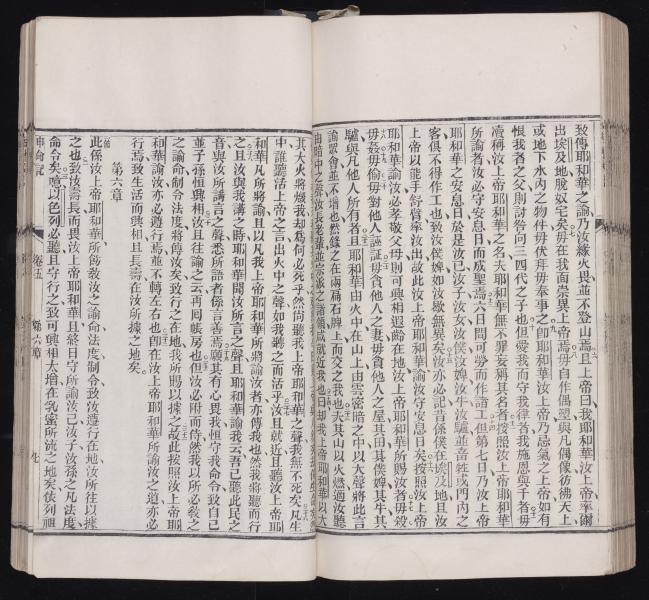 致傳耶和華之諭乃汝緣火畏並不登山焉且上帝曰我耶和華汝上帝率爾
出埃及地脫奴宅矣毋在我面崇異上帝焉毋自作偶塑與凡偶像彷彿天上
或地下水內之物件毋伏拜毋奉事之卽耶和華汝上帝乃忌氣之上帝如有
恨我者之父則討咎向三四代之子也但愛我而守我律者我施恩與千者毋
瀆稱汝上帝耶和華之名夫耶和華無不罪妄稱其名者按照汝上帝耶和華
所諭者汝必守安息日而成聖焉六日間可勞而作諸工但第七日乃汝上帝
耶和華之安息日於是汝己汝子汝女汝僕汝婢汝牛汝驢並畜牲或門內之
客俱不得作工也致汝僕婢如汝歇無異矣汝亦必記昔係僕在埃及地且汝
上帝以能手舒臂率汝出故此汝上帝耶和華諭汝守安息日矣按照汝上帝
耶和華諭汝必孝敬父母則可興相遐齡在地汝上帝耶和華所賜汝者毋殺
毋姦毋偷毋對他人誣証毋貪他人之妻毋貪他人之屋其田其僕婢其牛其
驢與凡他人所有者且耶和華由火中在山上由雲密暗中以大聲將此言
諭眾會並不增也然錄之在兩扁石牌上而交之我也夫其山以火燃適汝聽
由暗中之聲汝長老輩並宗派之諸領咸就近我也曰却我上帝耶和華以大
其大火將燬我却爲何必死乎然尙聽我上帝耶和華之聲我無不死矣凡生
中誰聽活上帝之言出火中之聲如我聽之而活乎汝且就近且聽汝上帝耶
和華凡所將諭且以凡我上帝耶和華所將諭汝者亦傳我也然我將聽而行
之且汝與我講之時耶和華聞汝所言之聲且耶和華諭我云吾已聽此民之
音與汝所講言之聲悉所語者係言善焉願其有心畏我恒守我命令致自己
並子孫恒興相汝且往諭之云再囘帳房也但汝必附而侍然我以所必敎之
之諭命制令法度將傳汝矣致行之在地我所賜以據之故此按照汝上帝耶
和華諭汝亦必遵行焉並不轉左右也卽在汝上帝耶和華所諭汝之道亦必
行焉致生活而興相且長壽在汝所據之地矣
第六章
此係汝上帝耶和華所飭敎汝之諭命法度制令致汝遵行在地汝所往以據
之也致汝壽長而畏汝上帝耶和華且終日守所諭汝己汝子汝孫之凡法度
命令矣噫以色列必聽且守行之致可興相太增在乳蜜所流之地矣依列祖
申命記
卷五
第六章